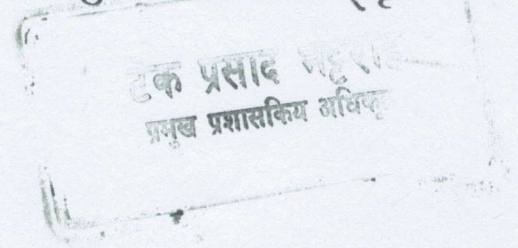 टेक प्रसाद
प्रमुख प्रशासकिय अधिकृत